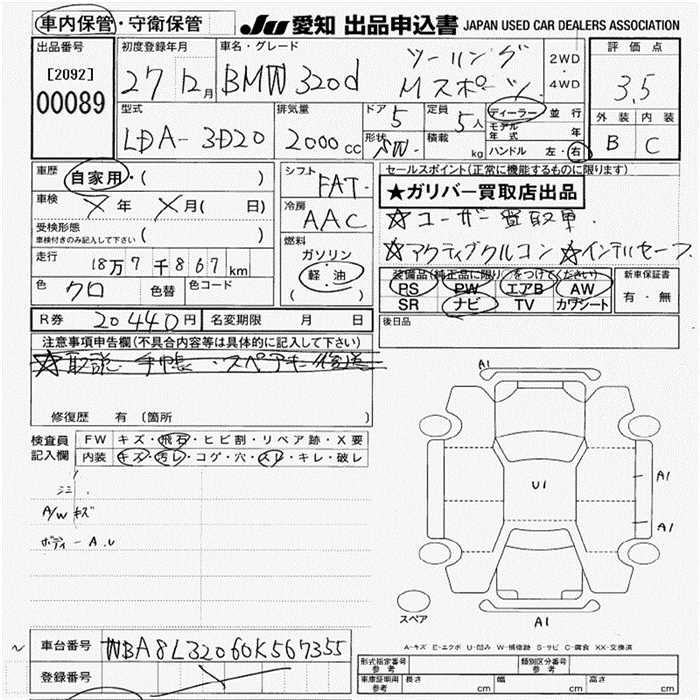 車内保管・守衛保管 JU 愛知 出品申込書 JAPAN USED CAR DEALERS ASSOCIATION
出品番号 初度登録年月 車名・グレード 評価点
[2092] 27 年 12月 BMW 320d ツーリング Mスポーツ 2WD・4WD 3.5
00089 外装 内装
型式 排気量 ドア 定員 ディーラー 並行 B C
LDA-3D20 2000cc 5 5人 モデル年式 年
形状 SW. 積載 kg ハンドル 左・右
車歴 自家用・( ) シフト FAT. セールスポイント(正常に機能するものに限ります)
★ガリバー買取店出品
車検 メ年 メ月( 日) 冷房 AAC ☆ユーザー買取車.
受検形態 ( ) ☆アクティブクルコン ☆インテリセーフ.
車検付きのみ記入して下さい
燃料
走行 18万7千867km ガソリン・軽油
( )
装備品(純正品に限り○をつけてください) 新車保証書
色 クロ 色替 色コード PS PW エアB AW 有・無
SR ナビ TV カワシート
R券 20440円 名変期限 月 日 後日品
注意事項申告欄(不具合内容等は具体的に記入して下さい)
☆取説・手帳・スペアキー後送
修復歴 有 〔箇所 〕
検査員記入欄 FW キズ・飛石・ヒビ割・リペア跡・X要
内装 キズ・汚レ・コゲ・穴・スレ・キレ・破レ
A1
U1
A1
A1
A1
A/W キズ
ボディーA.U
スペア
A-キズ E-エクボ U-凹み W-補修跡 S-サビ C-腐食 XX-交換済
車台番号 WBA8L32060K567355
登録番号
形式指定番号 参考 類別区分番号 参考
車庫証明用 参考 長さ cm 幅 cm 高さ cm